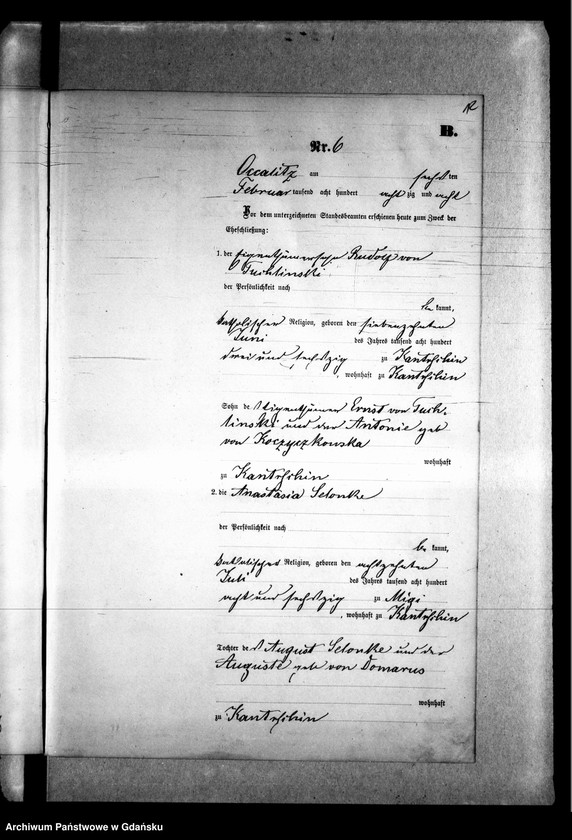 B.
Nr. 6
Occalitz am sechsten
Februar tausend acht hundert acht zig und acht
Vor dem unterzeichneten Standesbeamten erschienen heute zum Zweck der
Eheschließung:
1. der Eigenthümersohn Rudolf von
Tuchlinski
der Persönlichkeit nach
be kannt,
katholischer Religion, geboren den siebenzehnten
Juni des Jahres tausend acht hundert
drei und sechszig zu
, wohnhaft zu
Sohn des Eigenthümer Ernst von Tuch-
linski und der Antonie geb
von Koczyczkowska
wohnhaft
zu
2. die Anastasia Selonke
der Persönlichkeit nach
be kannt,
katholischer Religion, geboren den achtzehnten
Juli des Jahres tausend acht hundert
acht und sechszig zu Migi
, wohnhaft zu
Tochter des August Selonke und der
Auguste geb von Domarus
wohnhaft
zu
Archiwum Państwowe w Gdańsku